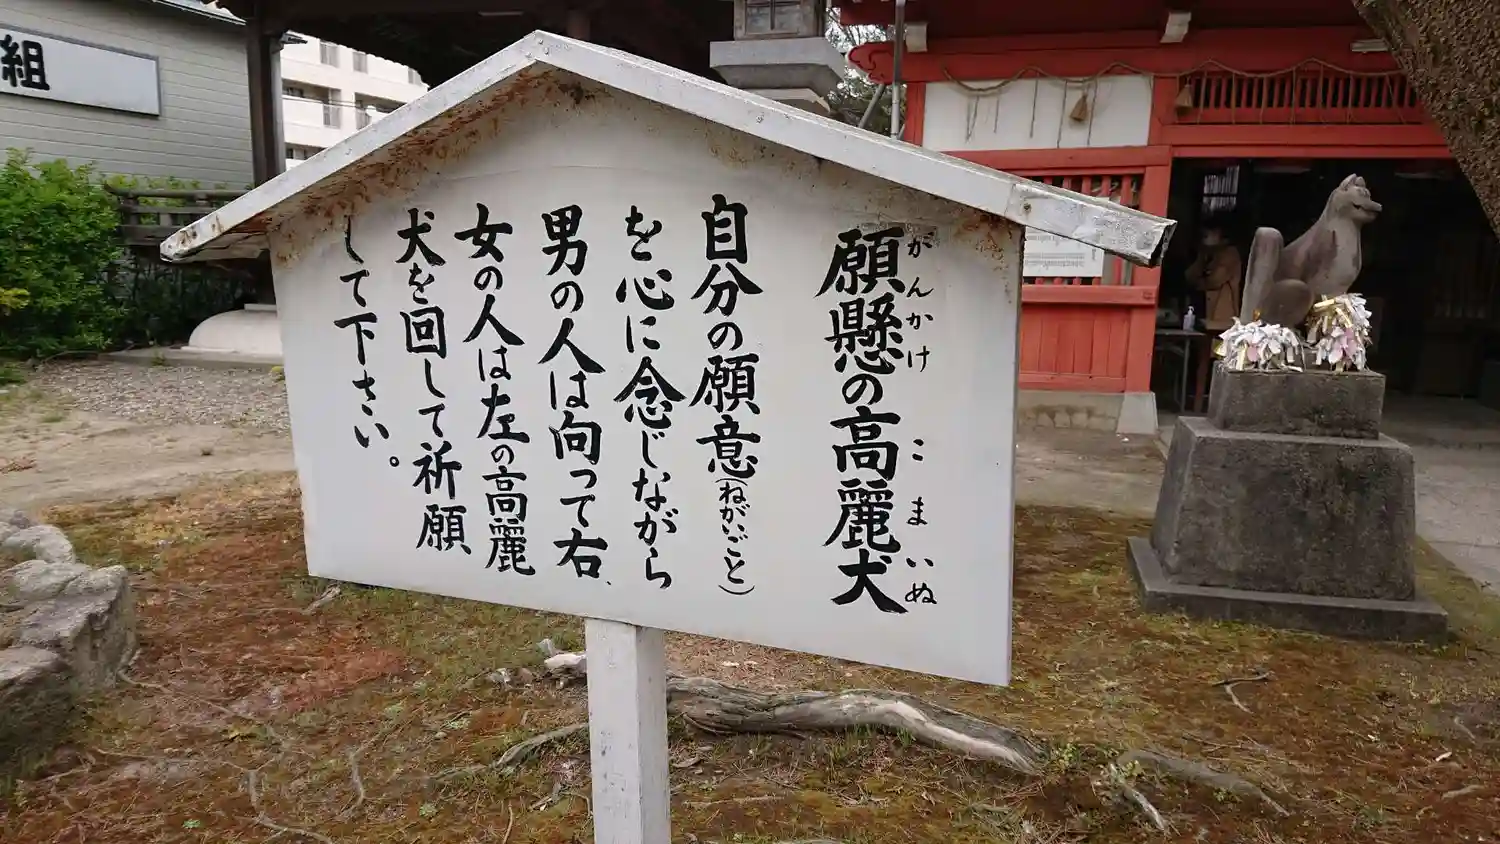 願懸の高麗犬
がんかけ こまいぬ
自分の願意(ねがいごと)
を心に念じながら
男の人は向って右、
女の人は左の高麗
犬を回して祈願
して下さい。
組